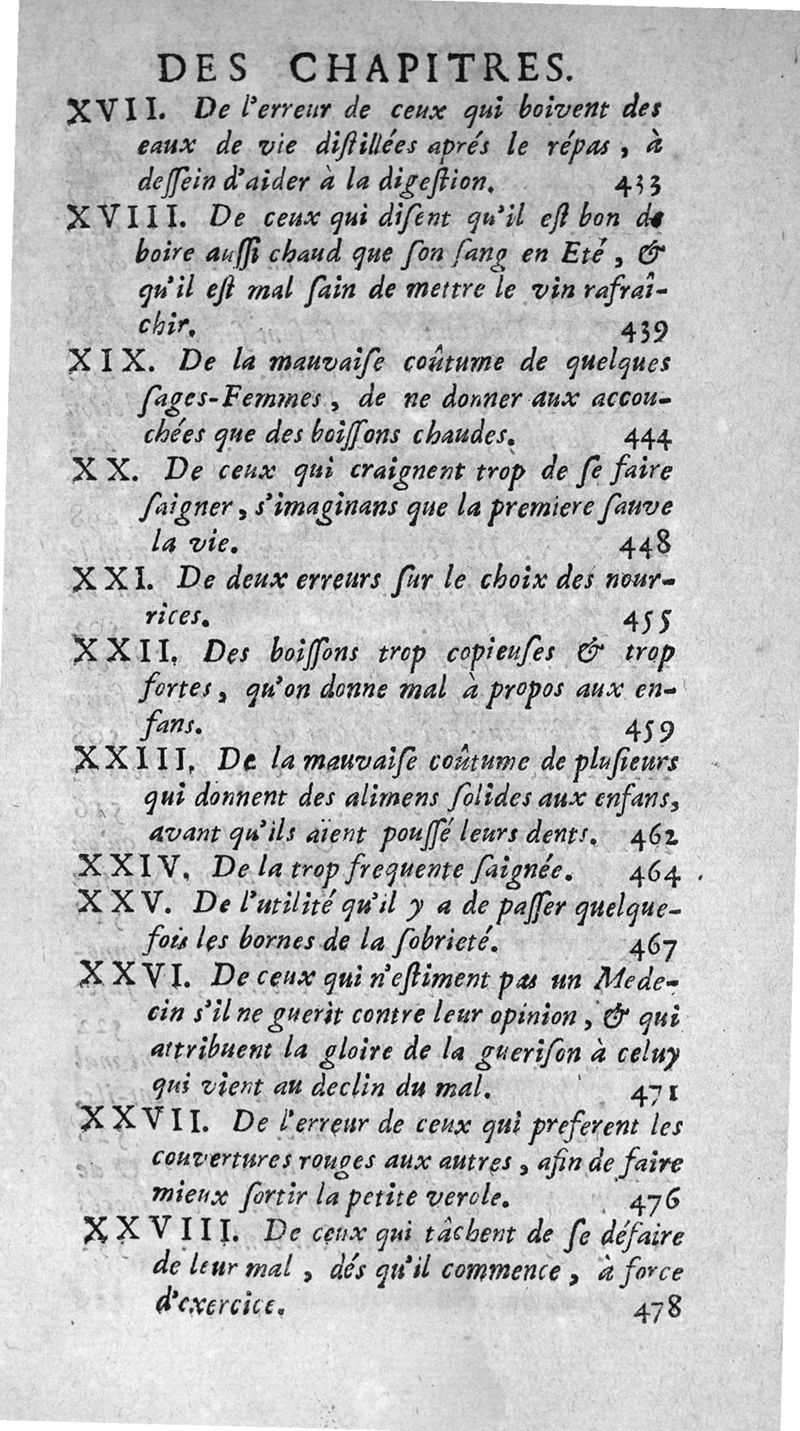 DES CHAPITRES.
XVII. De l'erreur de ceux qui boivent des
eaux de vie diſtillées aprés le répas, à
deſſein d'aider à la digeſtion. 433
XVIII. De ceux qui diſent qu'il eſt bon de
boire auſſi chaud que ſon ſang en Eté, &
qu'il eſt mal ſain de mettre le vin rafraî-
chir. 439
XIX. De la mauvaiſe coûtume de quelques
ſages-Femmes, de ne donner aux accou-
chées que des boiſſons chaudes. 444
XX. De ceux qui craignent trop de ſe faire
ſaigner, s'imaginans que la premiere ſauve
la vie. 448
XXI. De deux erreurs ſur le choix des nour-
rices. 455
XXII. Des boiſſons trop copieuſes & trop
fortes, qu'on donne mal à propos aux en-
fans. 459
XXIII. De la mauvaiſe coûtume de pluſieurs
qui donnent des alimens ſolides aux enfans,
avant qu'ils aïent pouſſé leurs dents. 462
XXIV. De la trop frequente ſaignée. 464
XXV. De l'utilité qu'il y a de paſſer quelque-
fois les bornes de la ſobrieté. 467
XXVI. De ceux qui n'eſtiment pas un Mede-
cin s'il ne guerit contre leur opinion, & qui
attribuent la gloire de la gueriſon à celuy
qui vient au declin du mal. 471
XXVII. De l'erreur de ceux qui preferent les
couvertures rouges aux autres, afin de faire
mieux ſortir la petite verole. 476
XXVIII. De ceux qui tâchent de ſe défaire
de leur mal, dés qu'il commence, à force
d'exercice. 478